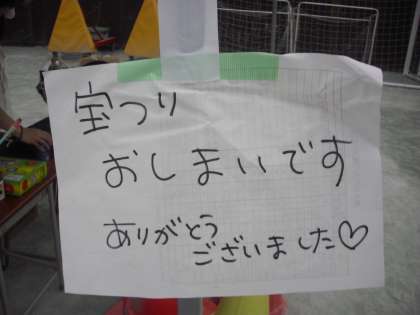 宝つり
おしまいです
ありがとう
ございました♡